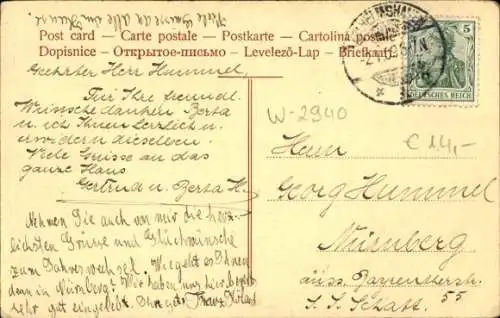 Viele Grüsse an alle im Hause!
Post card – Carte postale – Postkarte – Cartolina postale
Dopisnice – Открытое-письмо – Levelező-Lap – Briefkaart
5
DEUTSCHES REICH
Geehrter Herr Hummel,
Für Ihre freundl.
Wünsche danken Berta
u. ich Ihnen herzlich u.
erwidern dieselben.
Viele Grüsse an das
ganze Haus
Gertrud u. Berta H.
Nehmen Sie auch von mir die herz-
lichsten Grüsse und Glückwünsche
zum Jahreswechsel. Wie geht es Ihnen
denn in Nürnberg? Wir haben uns hier bereits
sehr gut eingelebt. Ihr erg.
W-2940
€ 14,-
Herrn
Georg Hummel
Nürnberg
äuss. Bayreutherst.
55